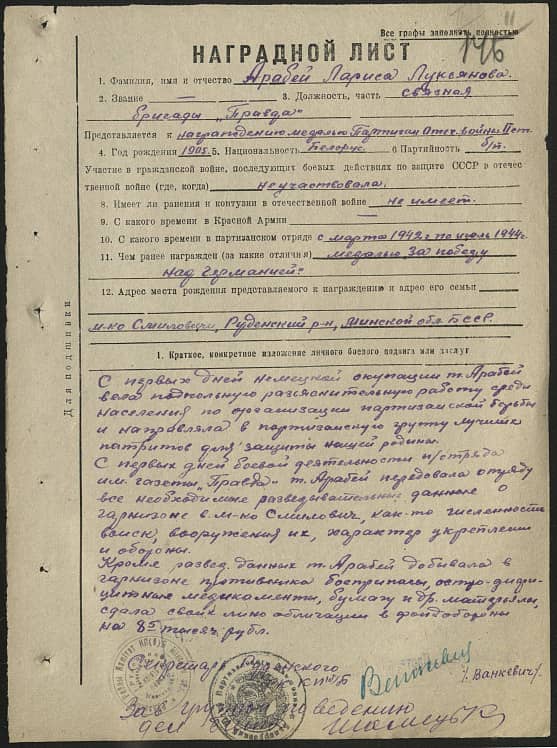 Все графы заполнять полностью
146
НАГРАДНОЙ ЛИСТ
1. Фамилия, имя и отчество Арабей Лариса Лукьянова.
2. Звание — 3. Должность, часть связная
бригады „Правда"
Представляется к награждению медалью Партизан Отеч. войны II ст.
4. Год рождения 1905 5. Национальность Белорус 6 Партийность б/п.
Участие в гражданской войне, последующих боевых действиях по защите СССР в отечес
твенной войне (где, когда) не участвовала.
8. Имеет ли ранения и контузии в отечественной войне не имеет.
9. С какого времени в Красной Армии —
10. С какого времени в партизанском отряде с марта 1942 г по июль 1944г.
11. Чем ранее награжден (за какие отличия) медалью За победу
над Германией.
12. Адрес места рождения представляемого к награждению и адрес его семьи
м-ко Смиловичи, Руденский р-н, Минской обл. БССР.
Для подшивки
1. Краткое, конкретное изложение личного боевого подвига или заслуг
С первых дней немецкой окупации т. Арабей
вела подпольную разяснительную работу среди
населения по организации партизанской борьбы
и направляла в партизанскую группу лучших
патриотов для защиты нашей родины.
С первых дней боевой деятельности п/отряда
им. газеты „Правда" т. Арабей передовала отряду
все необходимые разведывательные данные о
гарнизоне в м-ко Смилович, как-то численность
войск, вооружения их, характер укреплении
и обороны.
Кроме развед. данных т. Арабей добывала в
гарнизоне противника боеприпасы, остро-дифи-
цитные медикаменты, бумагу и др. материалы,
сдала своих лично облигации в фонд обороны
на 85 тысяч рубл.
Секретарь
/Ванкевич/